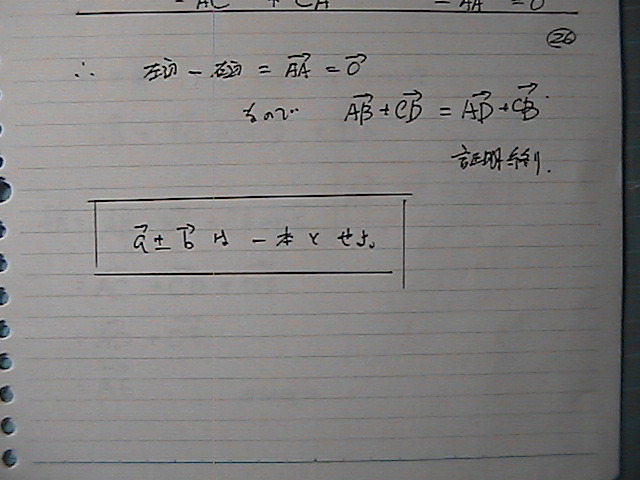 →AC + CA - AA = 0
㉖
∴ 左辺 - 右辺 = \vec{AA} = \vec{0}
なので \vec{AB} + \vec{CD} = \vec{AD} + \vec{CB}
証明終り.
\vec{a} ± \vec{b} は 一本とせよ。